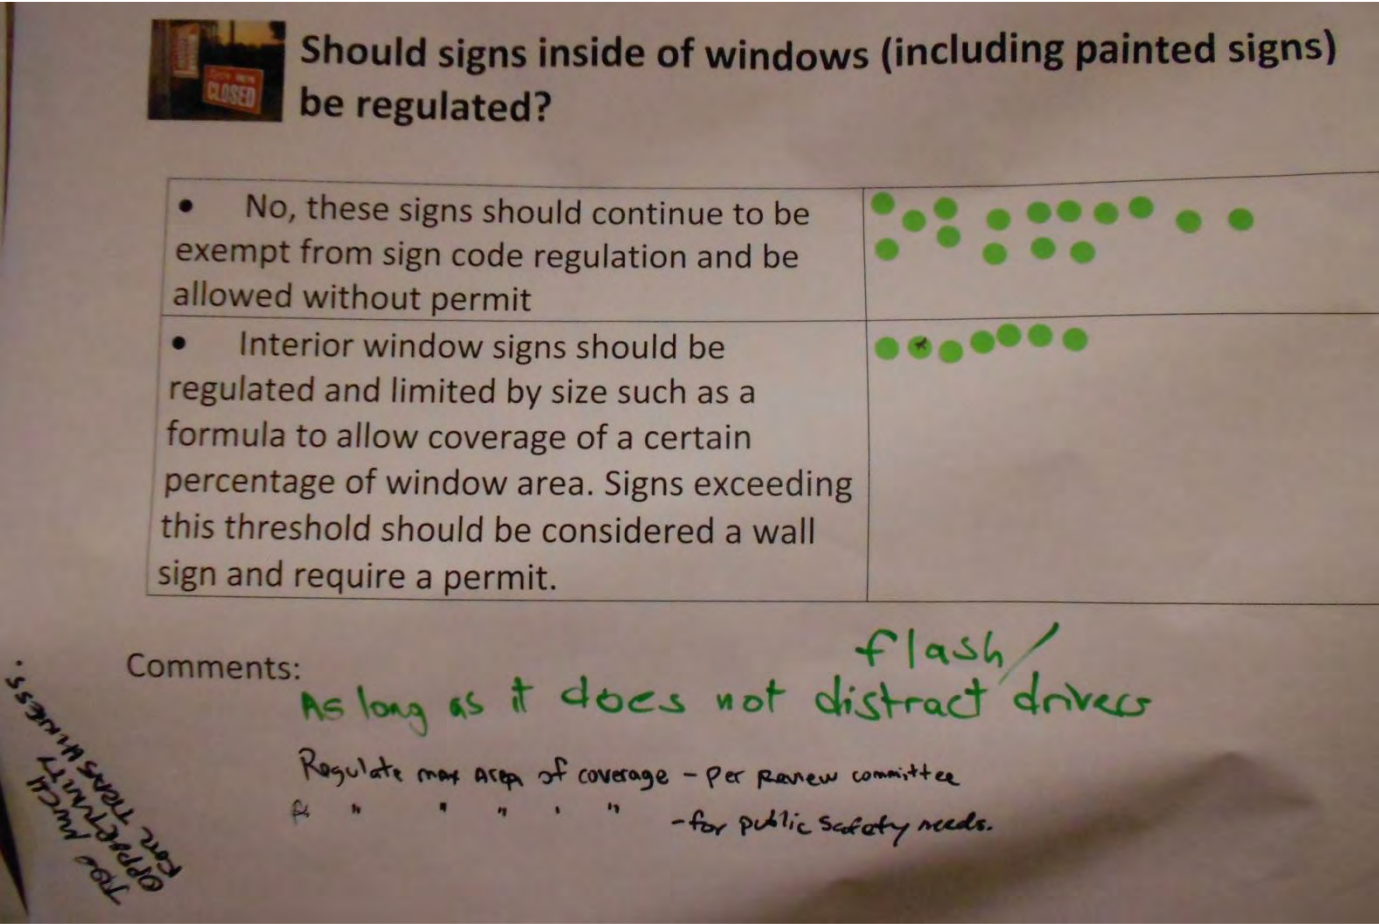 Should signs inside of windows (including painted signs)
be regulated?
CLOSED
• No, these signs should continue to be
exempt from sign code regulation and be
allowed without permit
• Interior window signs should be
regulated and limited by size such as a
formula to allow coverage of a certain
percentage of window area. Signs exceeding
this threshold should be considered a wall
sign and require a permit.
Comments:
flash/
As long as it does not distract drivers
Regulate max area of coverage - per review committee
" " " " " - for public safety needs.
TOO MUCH
OPPORTUNITY
FOR TRASHINESS.